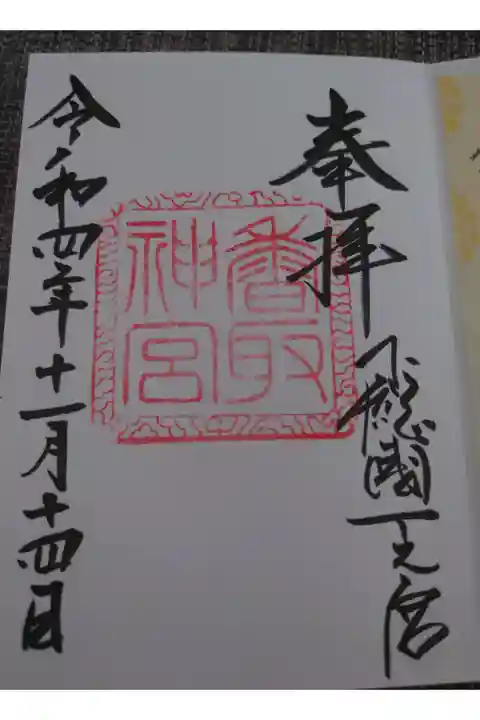 奉拝
下総國一之宮
香取
神宮
令和四年十一月十四日